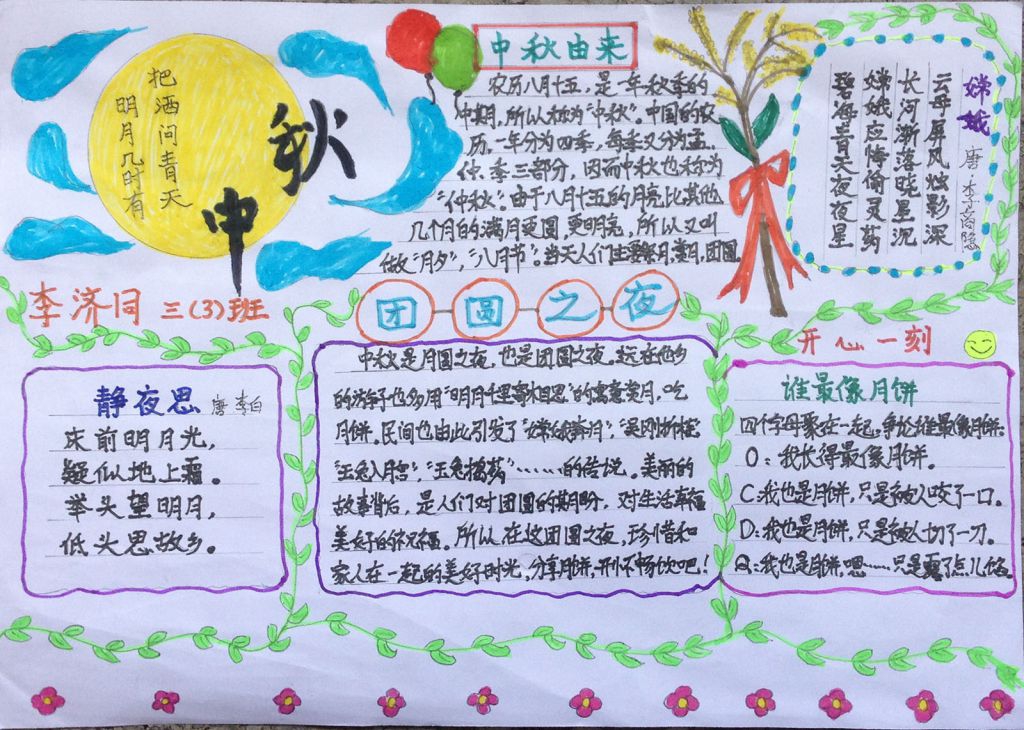 明月几时有
把酒问青天
中秋
中秋由来
农历八月十五，是一年秋季的
中期，所以称为“中秋”。中国的农
历，一年分为四季，每季又分为孟、
仲、季三部分，因而中秋也称为
“仲秋”。由于八月十五的月亮比其他
几个月的满月更圆，更明亮，所以又叫
做“月夕”，“八月节”。当天人们主要祭月，赏月，团圆。
嫦娥
唐·李商隐
云母屏风烛影深
长河渐落晓星沉
嫦娥应悔偷灵药
碧海青天夜夜星
李济同 三(3)班
静夜思 唐 李白
床前明月光，
疑似地上霜。
举头望明月，
低头思故乡。
团圆之夜
中秋是月圆之夜，也是团圆之夜。远在他乡
的游子也多用“明月千里寄相思”的寓意赏月，吃
月饼。民间也由此引发了“嫦娥奔月”，“吴刚折桂，
“玉兔入月宫”，“玉兔捣药”……的传说。美丽的
故事背后，是人们对团圆的期盼，对生活幸福
美好的祝福。所以，在这团圆之夜，珍惜和
家人在一起的美好时光，分享月饼，开怀畅饮吧！
开心一刻
谁最像月饼
四个字母聚在一起，争论谁最像月饼：
O：我长得最像月饼。
C：我也是月饼，只是被人咬了一口。
D：我也是月饼，只是被人切了一刀。
Q：我也是月饼，嗯……只是露了点儿馅。